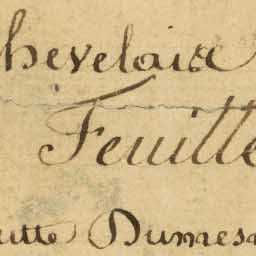 hevelaire
Feuille
uitte Dumes